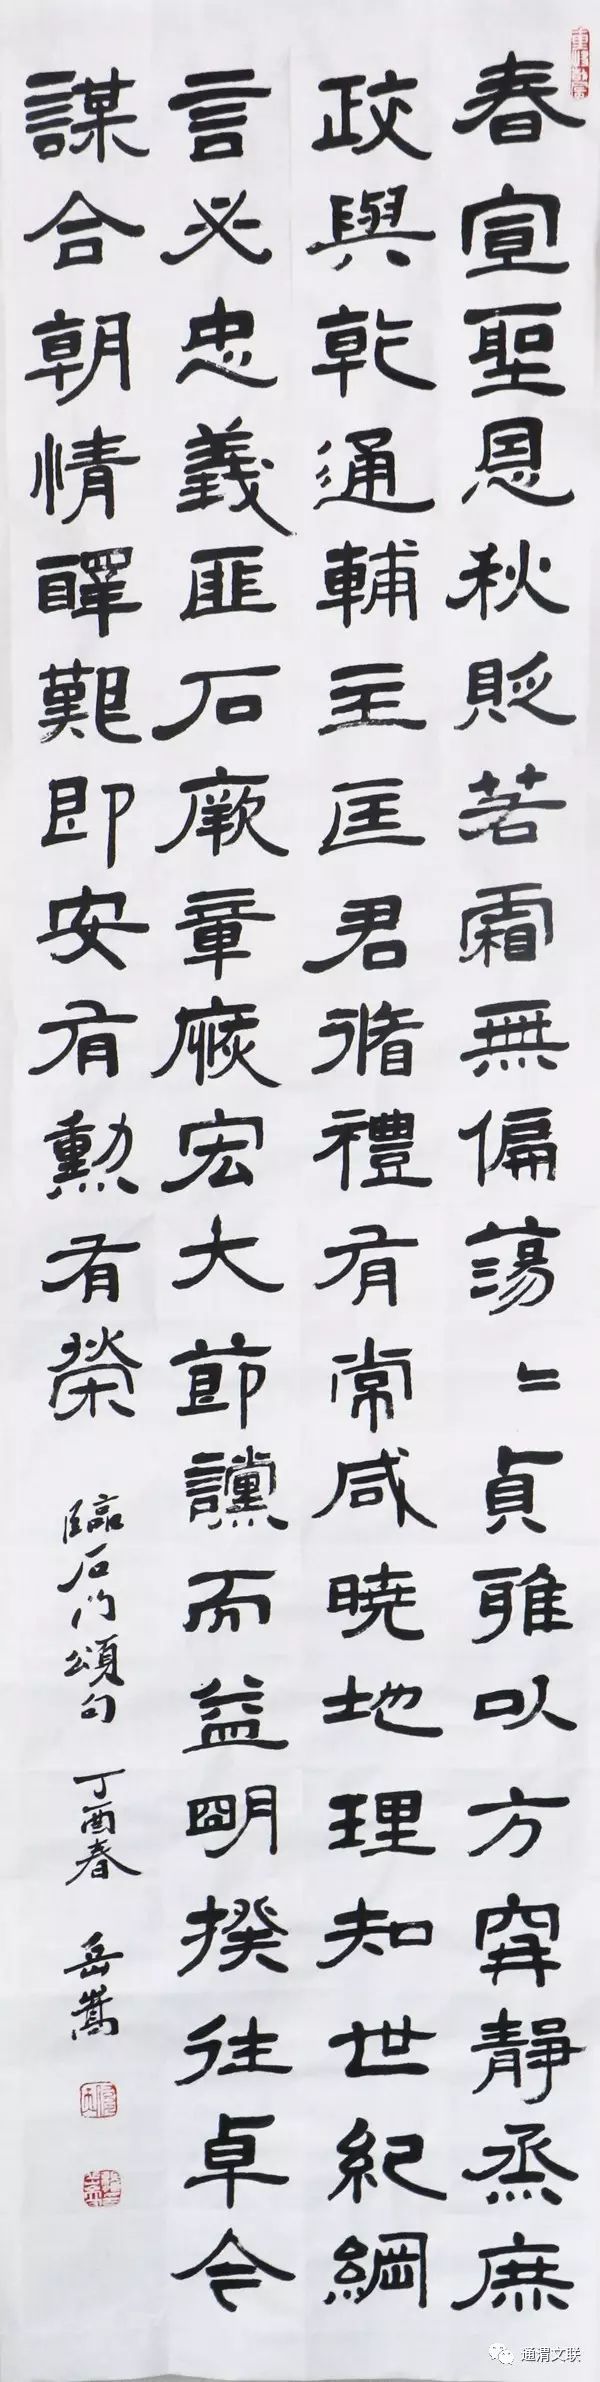 春宣聖恩秋貶若霜無偏蕩〻貞雅以方寧靜烝庶
政與乾通輔主匡君循禮有常咸曉地理知世紀綱
言必忠義匪石厥章厥宏大節讜而益明揆往卓今
謀合朝情醳艱即安有勲有榮
臨石门頌句 丁酉春 岳嵩
通渭文联